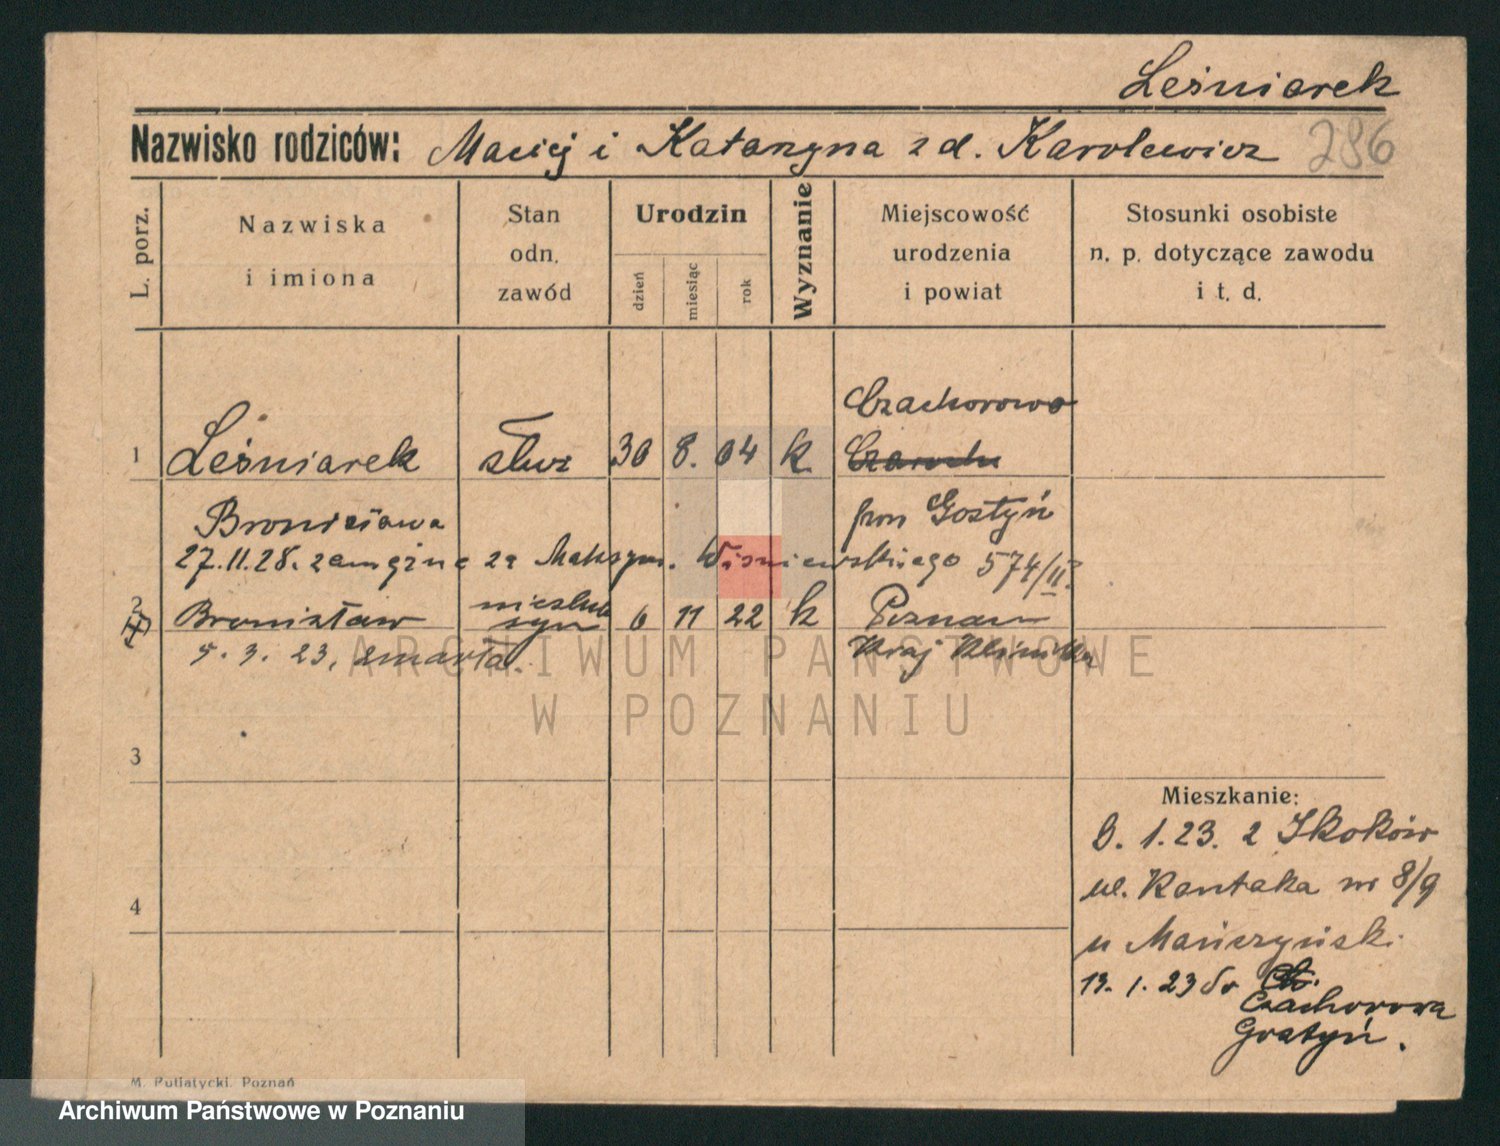 Leśniarek
Nazwisko rodziców: Maciej i Katarzyna z d. Karolewicz 286
L. porz.
Nazwiska
i imiona
Stan
odn.
zawód
Urodzin
dzień
miesiąc
rok
Wyznanie
Miejscowość
urodzenia
i powiat
Stosunki osobiste
n. p. dotyczące zawodu
i t. d.
Czachorowo
1 Leśniarek służ 30 8. 04 k.
Bronisława pow Gostyń
27.11.28. zamężna za Maksym. Wiśniewskiego 574/II
2 Bronisław nieślub syn 6 11 22 k Poznań
5. 3. 23, zmarła. Kraj Klinika
ARCHIWUM PAŃSTWOWE
W POZNANIU
3
Mieszkanie:
1.23. z Skoków
ul. Kantaka nr 8/9
4
u
13. 1. 23 do
Czachorowa
Gostyń.
M. Putiatycki. Poznań
Archiwum Państwowe w Poznaniu